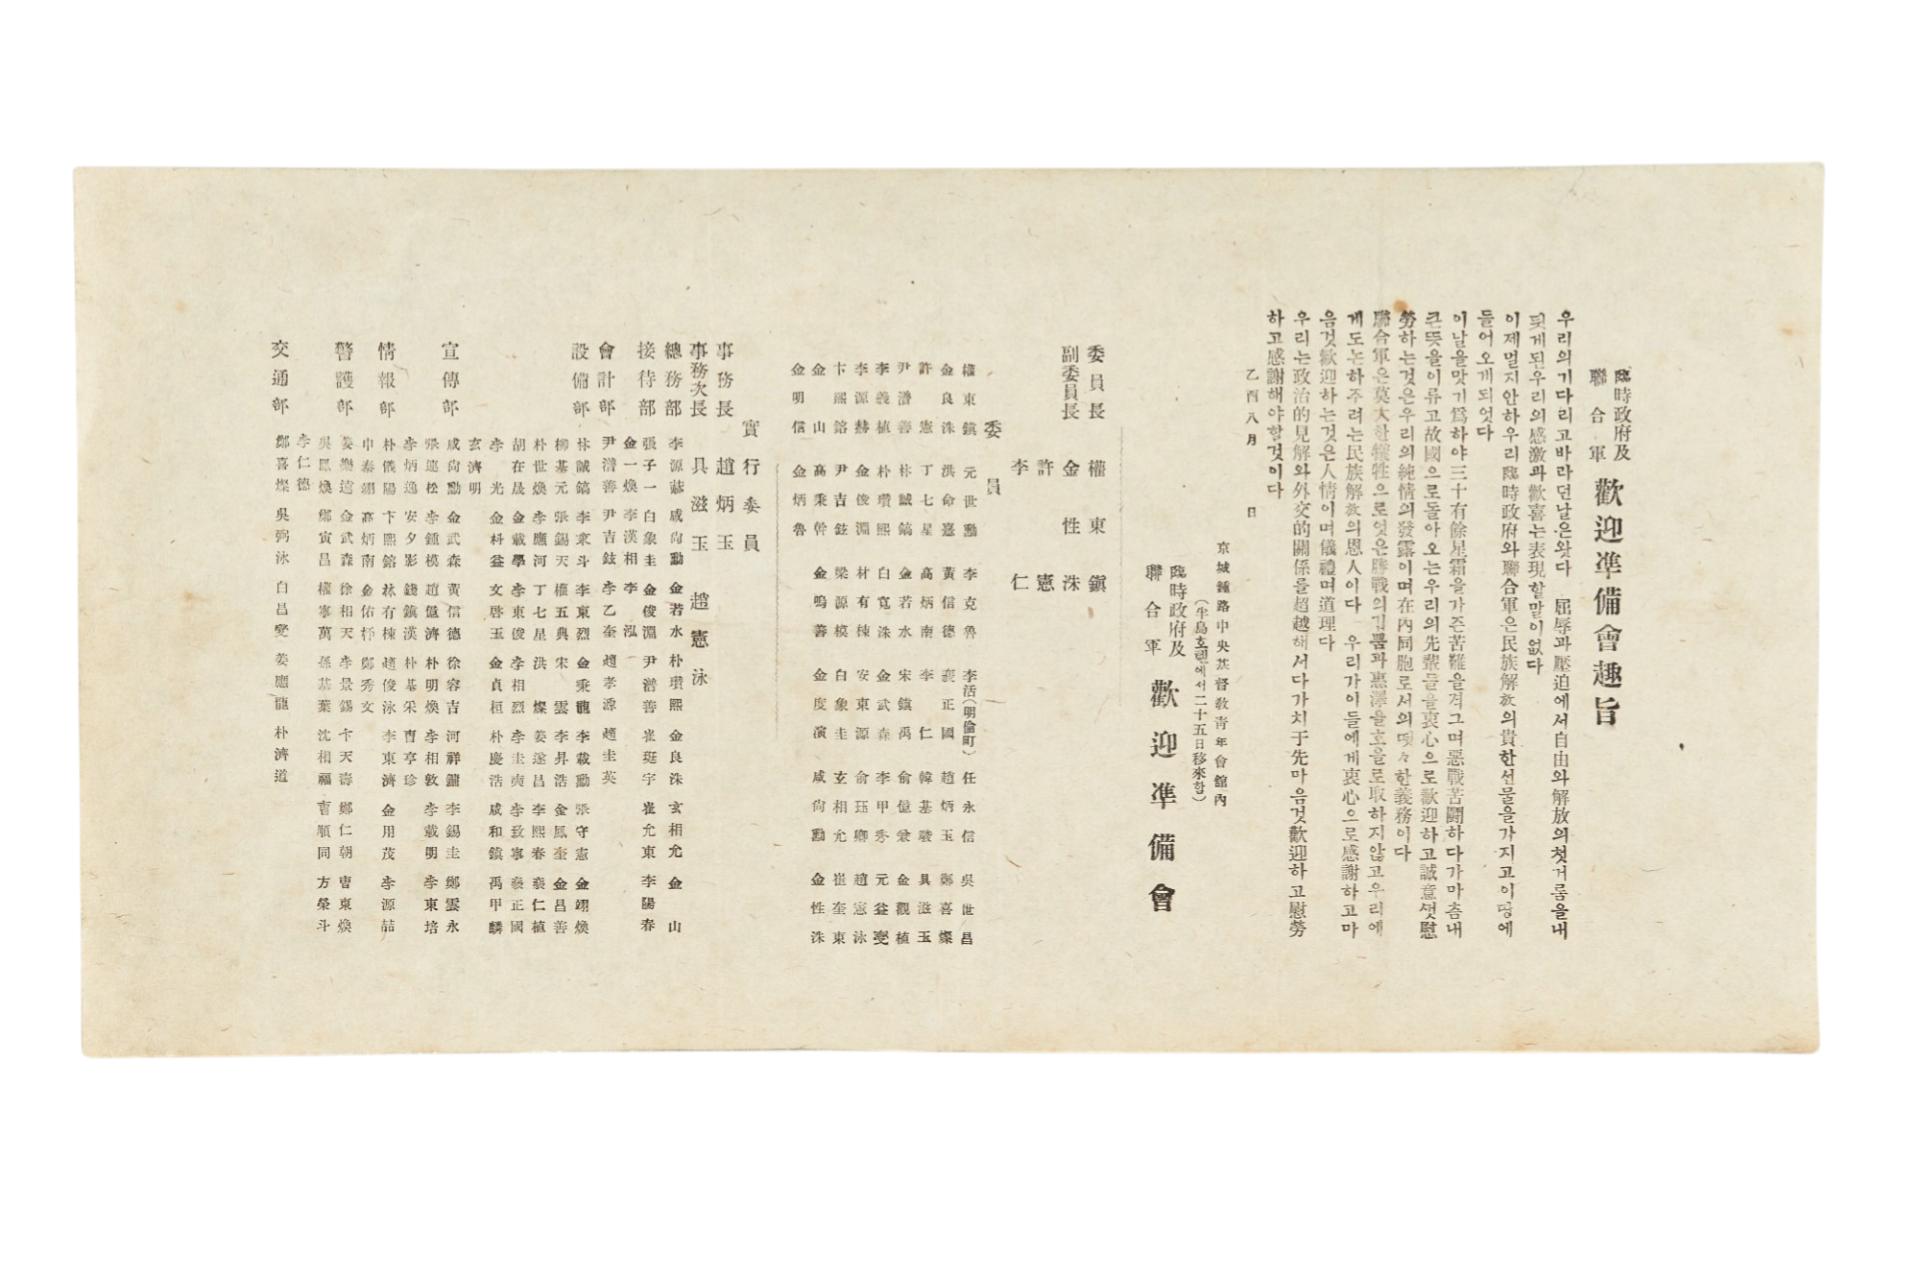 臨時政府及
聯合軍
歡迎準備會趣旨
우리의기다리고바라던날은왓다 屈辱과壓迫에서自由와解放의첫거름을내
딋게된우리의感激과歡喜는表現할말이없다
이제멀지안하우리臨時政府와聯合軍은民族解放의貴한선물을가지고이땅에
들어오게되엇다
이날을맞기爲하야三十有餘星霜을가즌苦難을격그며惡戰苦鬪하다가마츰내
큰뜻을이류고故國으로돌아오는우리의先輩들을衷心으로歡迎하고誠意껏慰
勞하는것은우리의純情의發露이며在內同胞로서의떳々한義務이다
聯合軍은莫大한犧牲으로엇은勝戰의깁쁨과惠澤을호을로取하지않고우리에
게도논하주려는民族解放의恩人이다 우리가이들에게衷心으로感謝하고마
음것歡迎하는것은人情이며儀禮며道理다
우리는政治的見解와外交的關係를超越해서다가치于先마음것歡迎하고慰勞
하고感謝해야할것이다
乙酉八月 日
京城鍾路中央基督敎靑年會舘內
(半島호텔에서二十五日移來함)
臨時政府及
聯合軍
歡迎準備會
委員長 權東鎭
副委員長 金性洙
許憲
李仁
委員
權東鎭 元世勳 李克魯 李活(明倫町) 任永信 吳世昌
金良洙 洪命憙 黃信德 裵正國 趙炳玉 鄭喜燦
許憲 丁七星 高炳南 李仁 韓基駿 具滋玉
尹潽善 林誠鎬 金若水 宋鎭禹 兪億兼 金觀植
李義植 朴瓚熙 白寬洙 金武森 李甲秀 元益燮
李源赫 金俊淵 材有棟 安東源 兪珏卿 趙憲泳
卞熙鎔 尹吉鉉 梁源模 白象圭 玄相允 崔奎東
金山 高秉幹 金鳴善 金度演 咸尙勳 金性洙
金明信 金炳魯
實行委員
事務長 趙炳玉
事務次長 具滋玉 趙憲泳
總務部 李源赫 咸尙勳 金若水 朴瓚熙 金良洙 玄相允 金山
接待部 張子一 白象圭 金俊淵 尹潽善 崔斑宇 崔允東 李陽春
金一煥 李漢相 李泓
會計部 尹潽善 尹吉鉉 李乙奎 趙孝源 趙圭英
設備部 林誠鎬 李東斗 李東烈 金秉龍 李載勳 張守憲 金翊煥
柳基元 張錫天 權五典 宋雲 李昇浩 金鳳奎 金昌善
朴世煥 李應河 丁七星 洪燦 姜遂昌 李熙春 裵仁植
胡在晟 金載學 李東俊 李相烈 李圭奭 李致寧 裵正國
李光 金科益 文啓玉 金貞桓 朴慶浩 咸和鎭 禹甲麟
玄濟明
宣傳部 咸尙勳 金武森 黃信德 徐容吉 河祥鏞 李錫圭 鄭雲永
張連松 李鍾模 趙儇濟 朴明煥 李相敦 李載明 李東培
李炳逸 安夕影 錢鎭漢 朴基采 曺亨珍
情報部 朴儀陽 卞熙鎔 林有棟 趙俊泳 李東濟 金用茂 李源喆
申泰翊 高炳南 金佑枰 鄭秀文
警護部 姜樂遠 金武森 徐相天 李景錫 卞天壽 鄭仁朝 曺東煥
吳鳳煥 鄭寅昌 權寧萬 孫基業 沈相福 曺順同 方榮斗
李仁德
交通部 鄭喜燦 吳弼泳 白昌燮 姜應龍 朴濟道